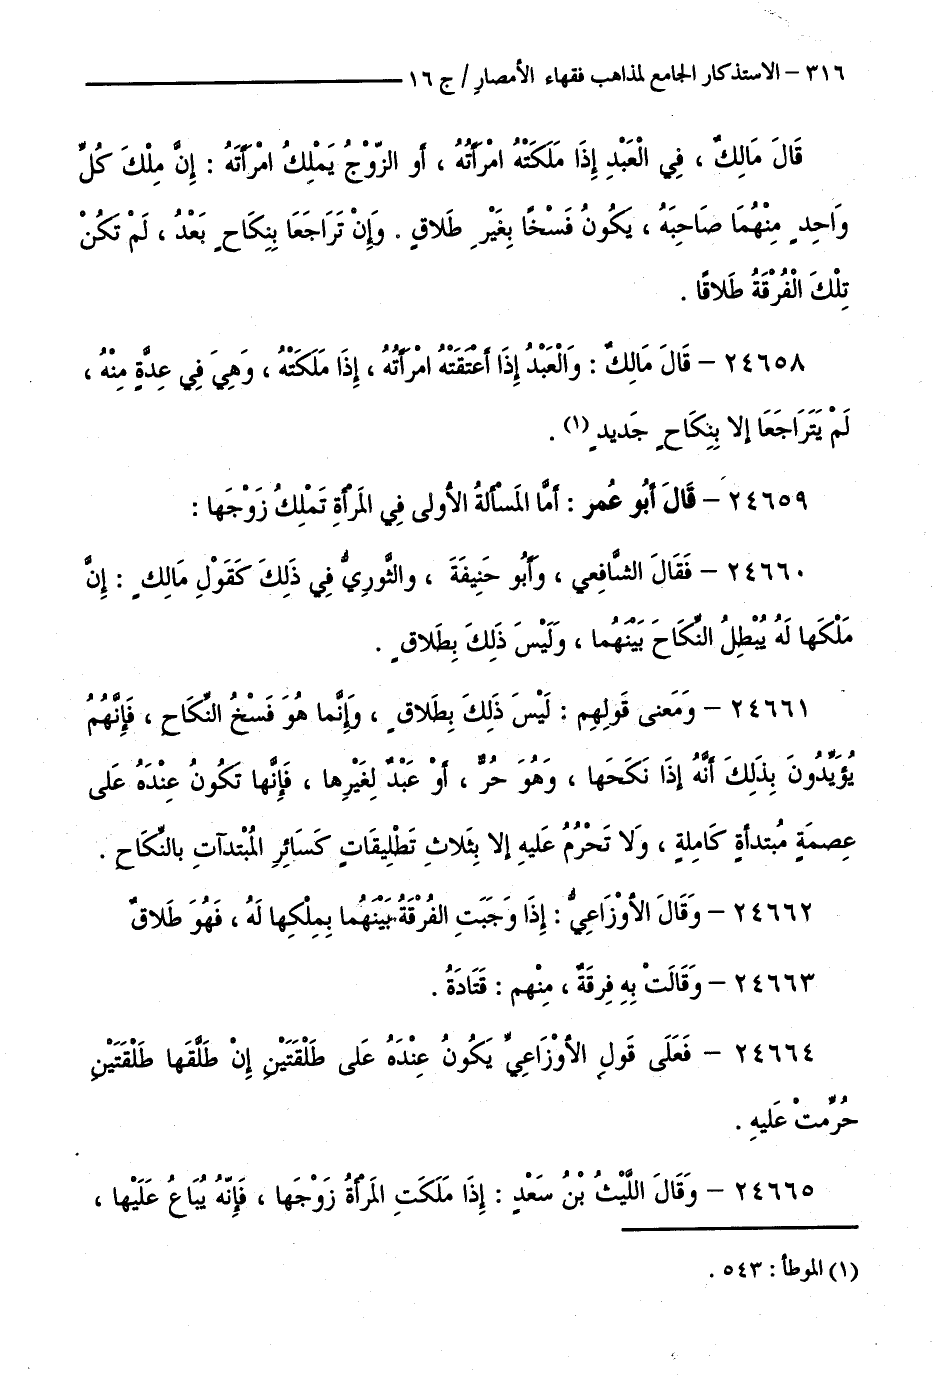 ٣١٦ – الاستذكار الجامع لمذاهب فقهاء الأمصار / ج ١٦
قَالَ مَالِكٌ ، فِي الْعَبْدِ إِذَا مَلَكَتْهُ امْرَأَتُهُ ، أو الزَّوْجُ يَمْلِكُ امْرَأَتَهُ : إِنَّ مِلْكَ كُلِّ
وَاحِدٍ مِنْهُمَا صَاحِبَهُ ، يَكُونُ فَسْخًا بِغَيْرِ طَلاقٍ . وَإِنْ تَرَاجَعَا بِنِكَاحٍ بَعْدُ ، لَمْ تَكُنْ
تِلْكَ الْفُرْقَةُ طَلاقًا .
٢٤٦٥٨ – قَالَ مَالِكٌ : وَالْعَبْدُ إِذَا أَعْتَقَتْهُ امْرَأَتُهُ ، إِذَا مَلَكَتْهُ ، وَهِيَ فِي عِدَّةٍ مِنْهُ ،
لَمْ يَتَرَاجَعَا إلا بِنِكَاحٍ جَديدٍ (١) .
٢٤٦٥٩ – قَالَ أَبُو عُمر : أَمَّا المَسْأَلةُ الأولى فِي المَرْأةِ تَمْلِكُ زَوْجَها :
٢٤٦٦٠ – فَقَالَ الشَّافِعي ، وَأَبُو حَنِيفَةَ ، والثَّوريُّ فِي ذَلِكَ كَقَوْلِ مَالِكٍ : إِنَّ
مَلْكَها لَهُ يُبْطِلُ النِّكَاحَ بَيْنَهُما ، وَلَيْسَ ذَلِكَ بِطَلاقٍ .
٢٤٦٦١ – وَمَعنى قَولِهِم : لَيْسَ ذَلِكَ بِطَلاقٍ ، وَإِنَّما هُوَ فَسْخُ النِّكَاحِ ، فَإِنَّهُمُ
يُؤَيِّدُونَ بِذَلِكَ أَنَّهُ إِذَا نَكَحَها ، وَهُوَ حُرٌّ ، أَوْ عَبْدٌ لِغَيْرِها ، فَإِنَّها تَكُونُ عِنْدَهُ عَلى
عِصمَةٍ مُبتدأةٍ كَامِلةٍ ، وَلَا تَحْرُمُ عَليهِ إلا بِثَلاثِ تَطْلِيقَاتٍ كَسَائِرِ المُبْتدآتِ بالنِّكَاحِ .
٢٤٦٦٢ – وَقَالَ الأَوْزَاعِيُّ : إِذَا وَجَبَتِ الفُرْقَةُ بَيْنَهُما بِمِلْكِها لَهُ ، فَهُوَ طَلاقٌ
٢٤٦٦٣ – وَقَالَتْ بِهِ فِرقَةٌ ، مِنْهم : قَتَادَةُ .
٢٤٦٦٤ – فَعَلَى قَولِ الأَوْزَاعِيِّ يَكونُ عِنْدَهُ عَلى طَلْقَتَيْنِ إِنْ طَلَّقَها طَلْقَتَيْنِ
حُرِّمتْ عَليهِ .
٢٤٦٦٥ – وَقَالَ اللَّيْثُ بْنُ سَعْدٍ : إِذَا مَلَكَتِ المَرْأَةُ زَوْجَها ، فَإِنَّهُ يُبَاعُ عَلَيْها ،
(١) الموطأ : ٥٤٣ .